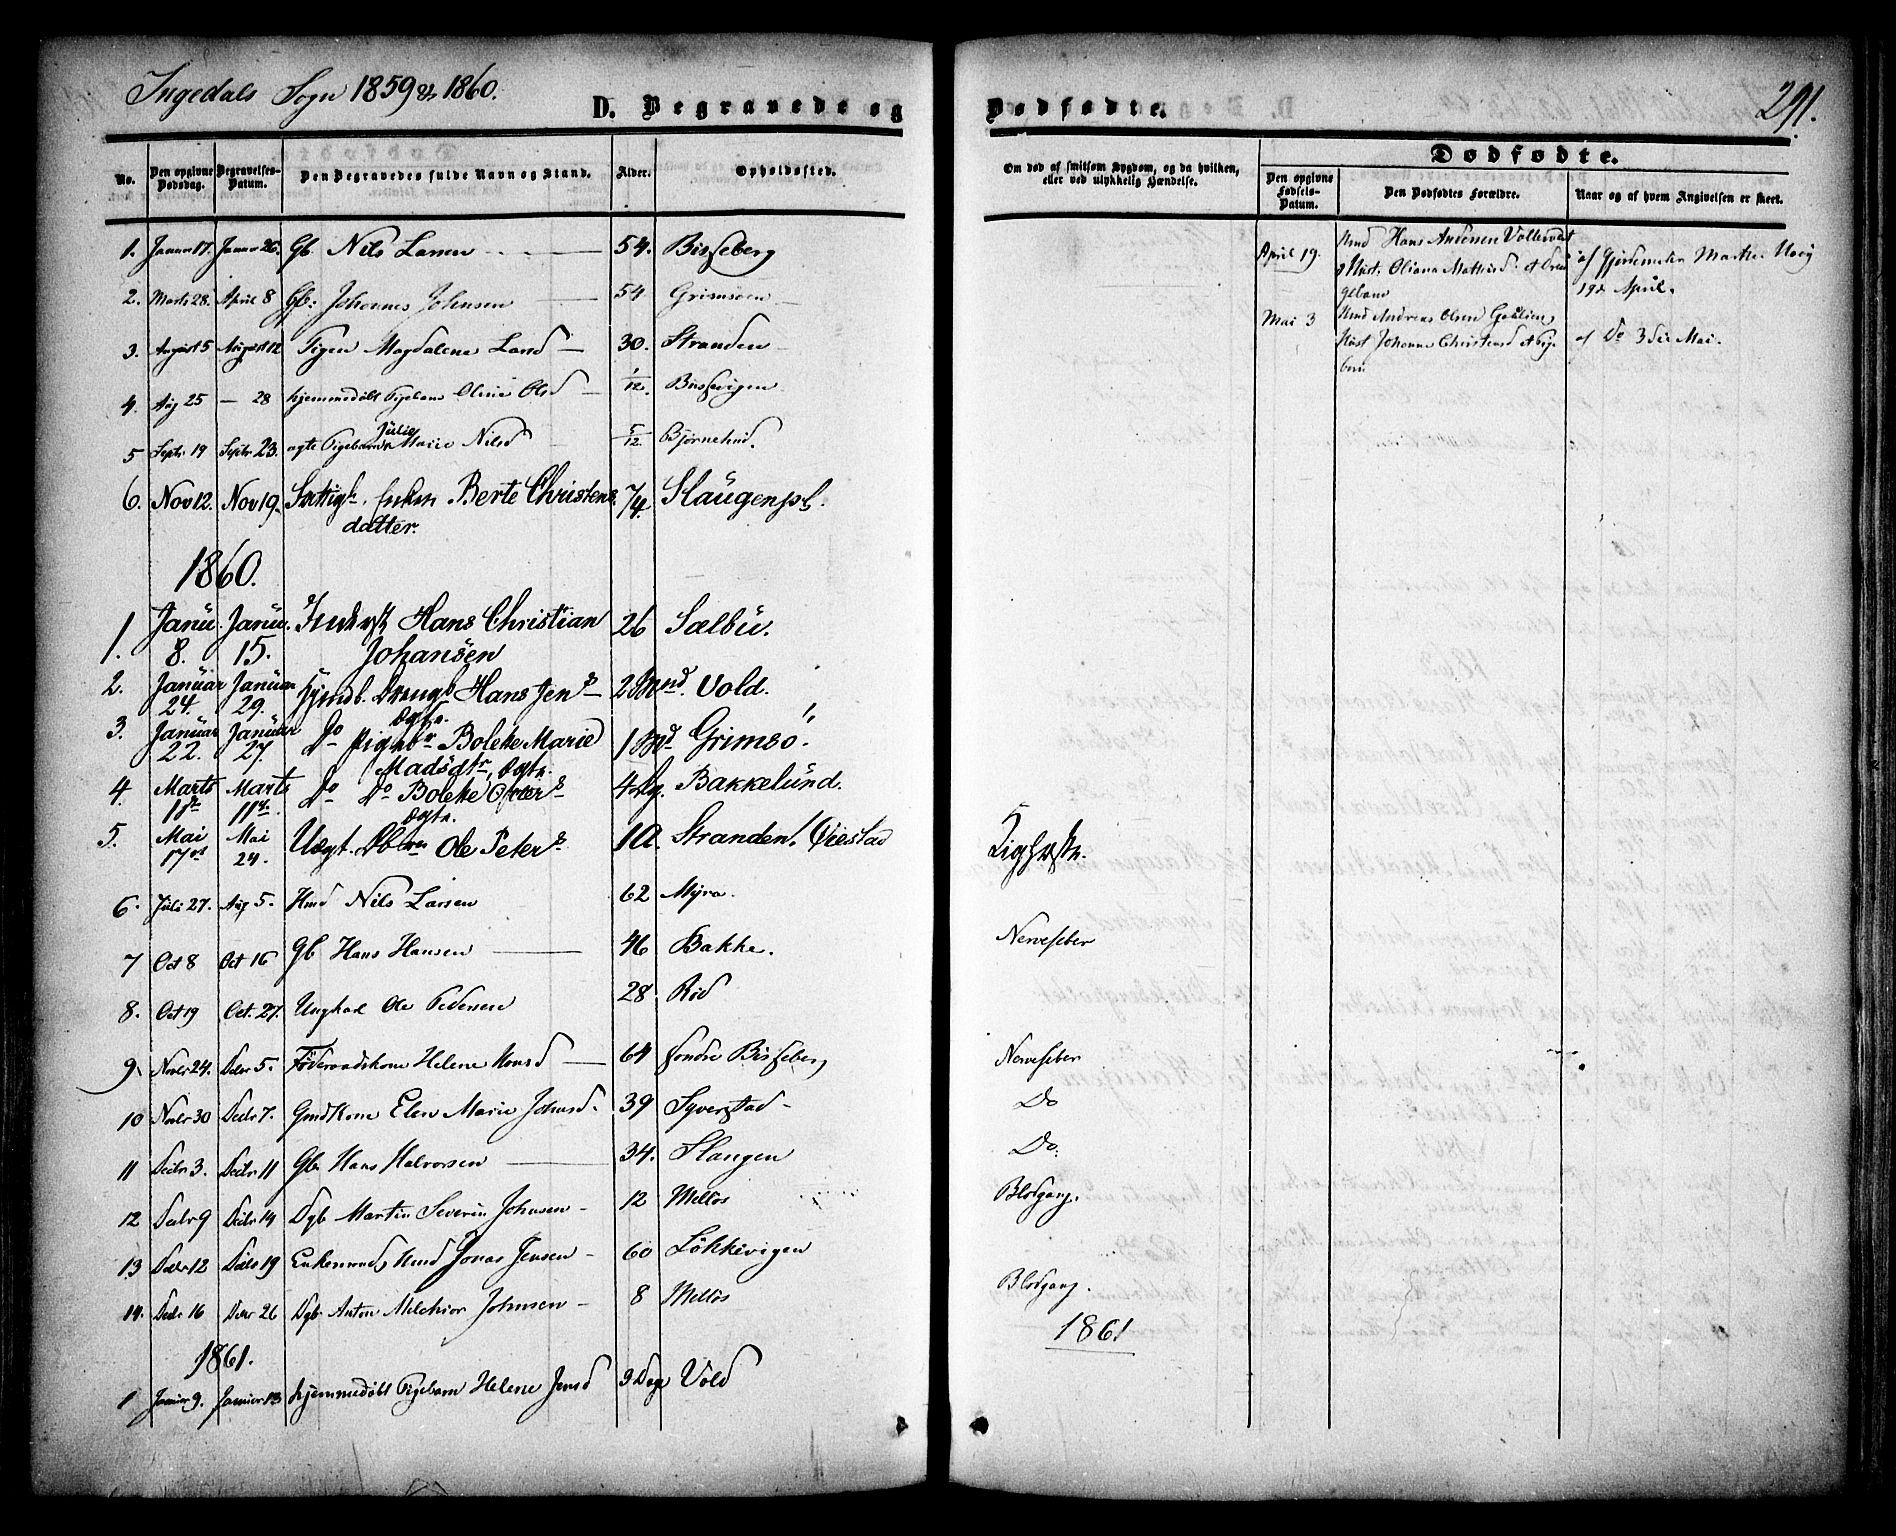 Ingedals Sogn 1859 & 1860.
D. Begravede og
Dødfødte.
291.
No. Den opgivne Dødsdag. Begravelses-Datum. Den Begravedes fulde Navn og Stand. Alder. Opholdssted.
Om død af smitsom Sygdom, og da hvilken, eller ved ulykkelig Hændelse.
Dødfødte.
Den opgivne Fødsels-Datum. Den Dødfødtes Forældre. Naar og af hvem Angivelsen er skeet.
1. Januar 17. Januar 26. Gb Nils Larsen 54. Bisseberg
2. Marts 28. April 8 Gb: Johannes Johnsen 54. Grimsøen
3. August 5 August 12 Pigen Magdalena Larsd 30. Stranden
4. Aug 25 — 28 hjemmedøbt Pigebarn Oline Olsd 1/12. Bissevigen
5 Septr 19 Septr 23. ægte Pigebarn Julie Marie Nilsd 5/12. Bjørnehud.
6. Nov 12. Nov 19. Enken Berte Christens 74. Slaugenpl.
datter.
1860.
1. Janu. 8. Janu. 15. Inderst Hans Christian 26 Sælbu.
Johansen
2. Januar 24. Januar 29. hjmdb. Drengb Hans Jens 2 Mnd. Vold.
Ægte.
3. Januar 22. Januar 27. Do Pigebr Bolette Marie 1 Md Grimsø.
Madsdtr, Ægte.
4. Marts Marts Do Do Bolette 4 Dg. Bakkelund.
11te Ægte.
5. Mai 17de Mai 24. Uægt. Dbrn Ole Peters 10. Stranden.
6. Juli 27. Aug 5. Hmd Nils Larsen 62 Myra.
7 Oct 8 Oct 16 Gb Hans Hansen 46 Bakke. Nervefeber
8. Oct 19 Oct. 27. Ungkarl Ole Pedersen 28 Rød
9. Novbr 24. Decbr 5. Føderaadskone Helene Hansd 64 søndre Bisseberg Nervefeber
10 Novbr 30 Decbr 7. Gmdkone Elen Marie Johnsd. 39 Syverstad Do
11 Decbr 3. Decbr 11 Gb. Hans Halvorsen 34. Slangen Do.
12 Decbr 9 Decbr 14 Dgb Martin Severin Johnsen 12 Melløs Blodgang.
13 Decbr 12 Decbr 19 Enkemand, Hmd Jonas Jensen 60 Løkkevigen
14. Decbr 16 Decbr 26 Dgb. Anton Melchior Johnsen 8 Melløs Blodgang.
1861.
1861
1 Januar 9. Januar 13 hjemmedøbt Pigebarn Helene Jensd 9 Dage Vold
April 19. Hmd Hans Andersen
og Hust. Oliana Mathisd. et Dren
gebarn
af Gjordemoder Marthe
19de April.
Mai 3 Hmd Andreas Olsen
Hust Johanne Christensd et Pige
barn
af Do 3die Mai.